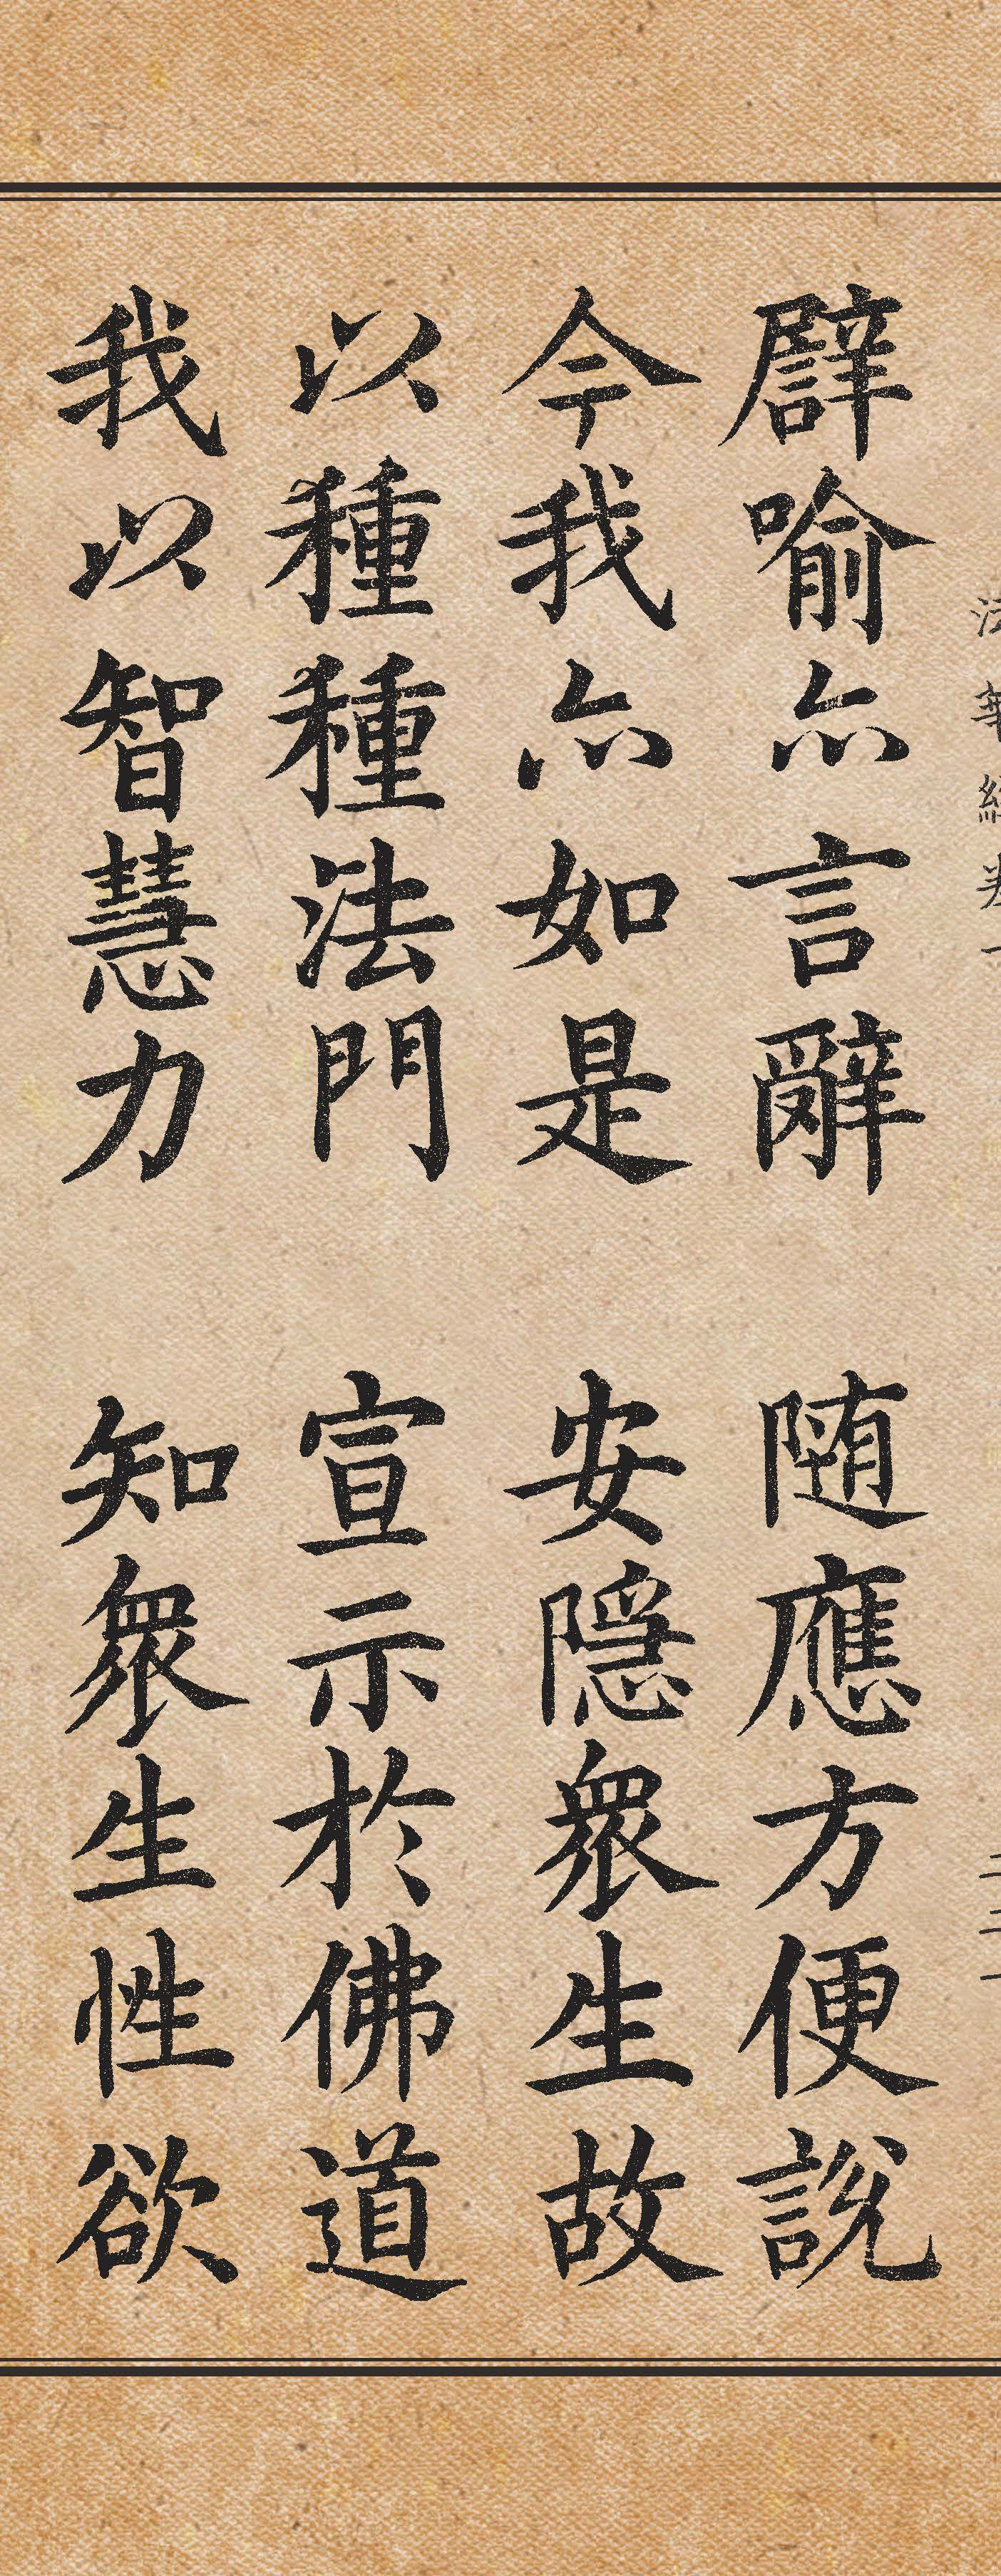 譬喻亦言辭 随應方便說
今我亦如是 安隱衆生故
以種種法門 宣示於佛道
我以智慧力 知衆生性欲